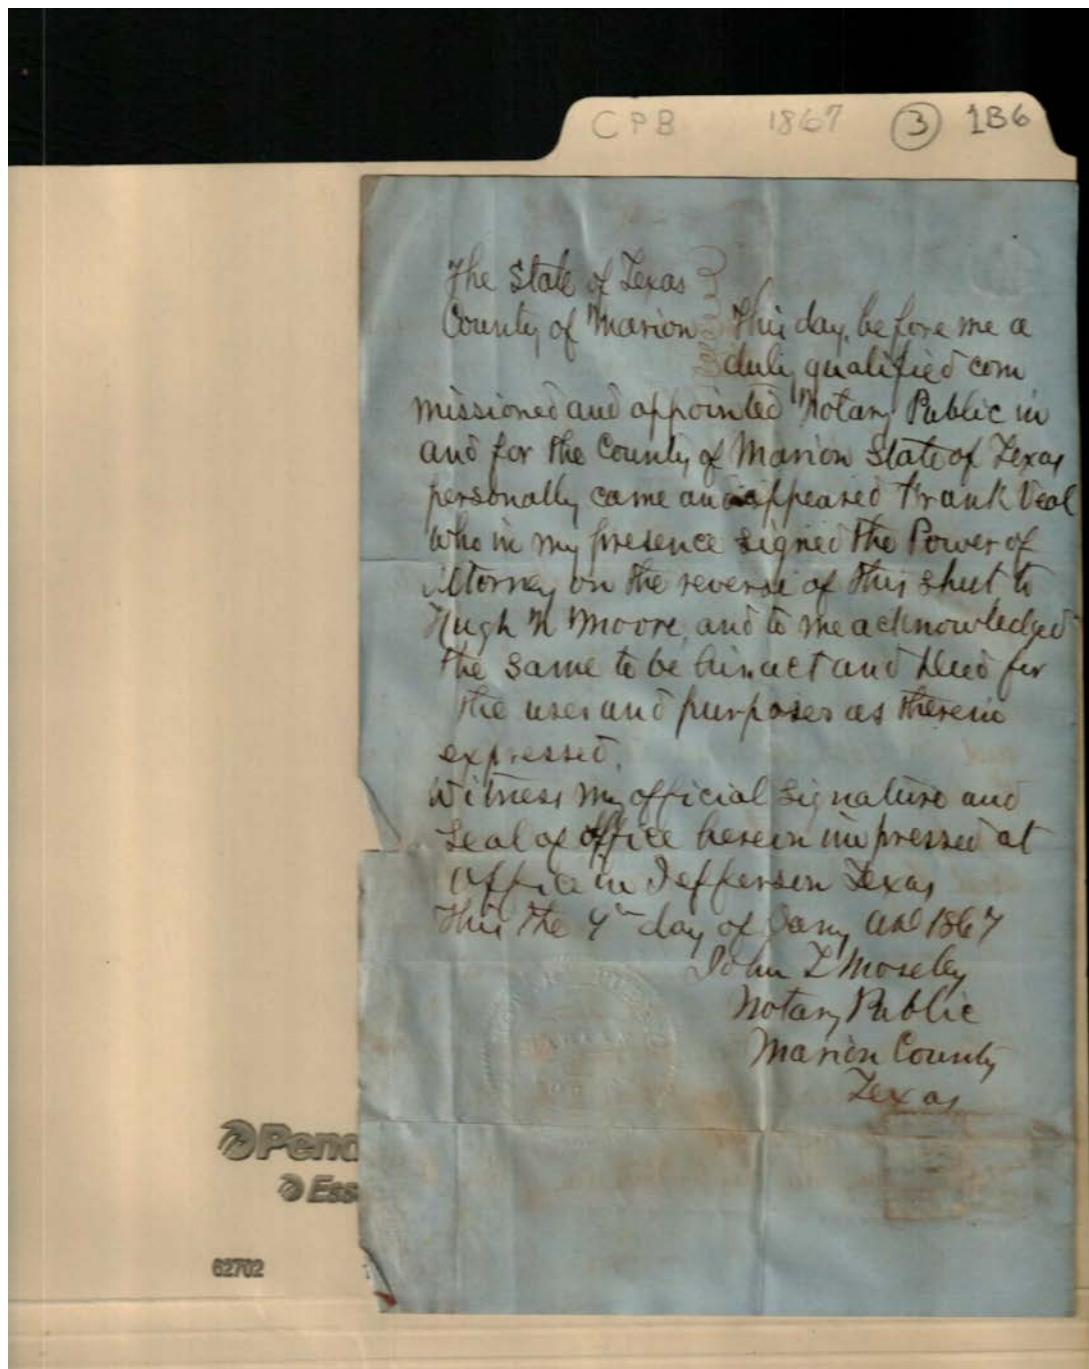 CPB 1867 3 1B6
The State of Texas
County of Marion This day, before me a
duly qualified com
missioned and appointed Notary Public in
and for the County of Marion State of Texas
personally came and appeared Frank Veal
who in my presence signed the Power of
Attorney on the reverse of this sheet to
Hugh N Moore, and to me acknowledged
the same to be his act and Deed for
the uses and purposes as therein
expressed.
Witness my official signature and
Seal of office herein impressed at
office in Jefferson Texas
This the day of Jany AD 1867
John L Moseley
Notary Public
Marion County
Texas
Pend
Ess
62702